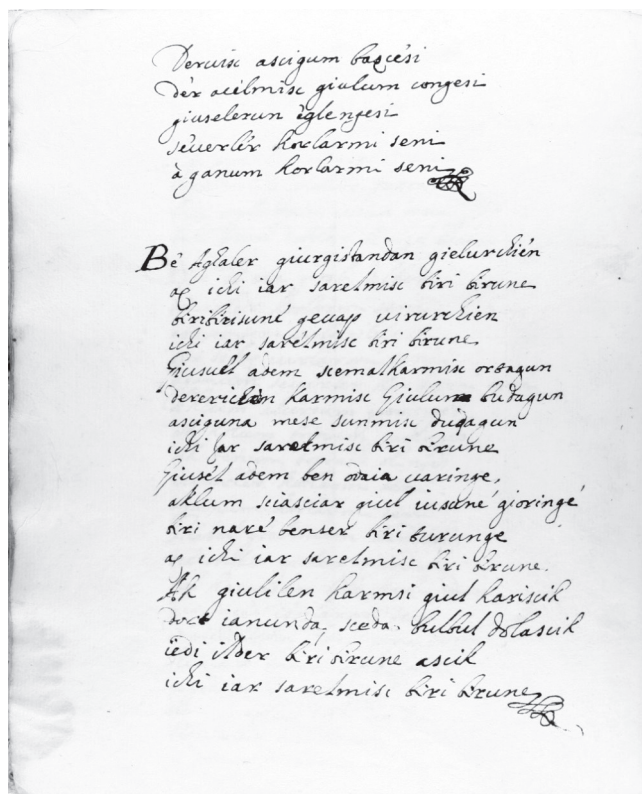 Deruisc ascigum baxcési
dér acélmisc giulum congesi
giuselerun églengesi
séuerlér korlarmi seni
à ganum korlarmi seni
Bé Aghaler giurgistandan gielurchién
ax ichi iar saretmisc biri birune
biribirisuné geuap uirurchien
ichi iar sarétmisc biri birune
Giusél adem scematkarmisc ortagun
dererichen karmisc Giulum budagun
asciguna mese sunmisc dudagun
ichi iar saretmisc biri birune
Giusél adem ben odaia uaringe,
aklum sciasciar giul iusuné gioringé
biri naré benser biri turunge
ax ichi iar saretmisc biri birune.
Ak giulilen karmsi giul kariscik
doct ianunda, sceda bulbul dolascik
iedi ilder biri birune ascik
ichi iar saretmisc biri birune